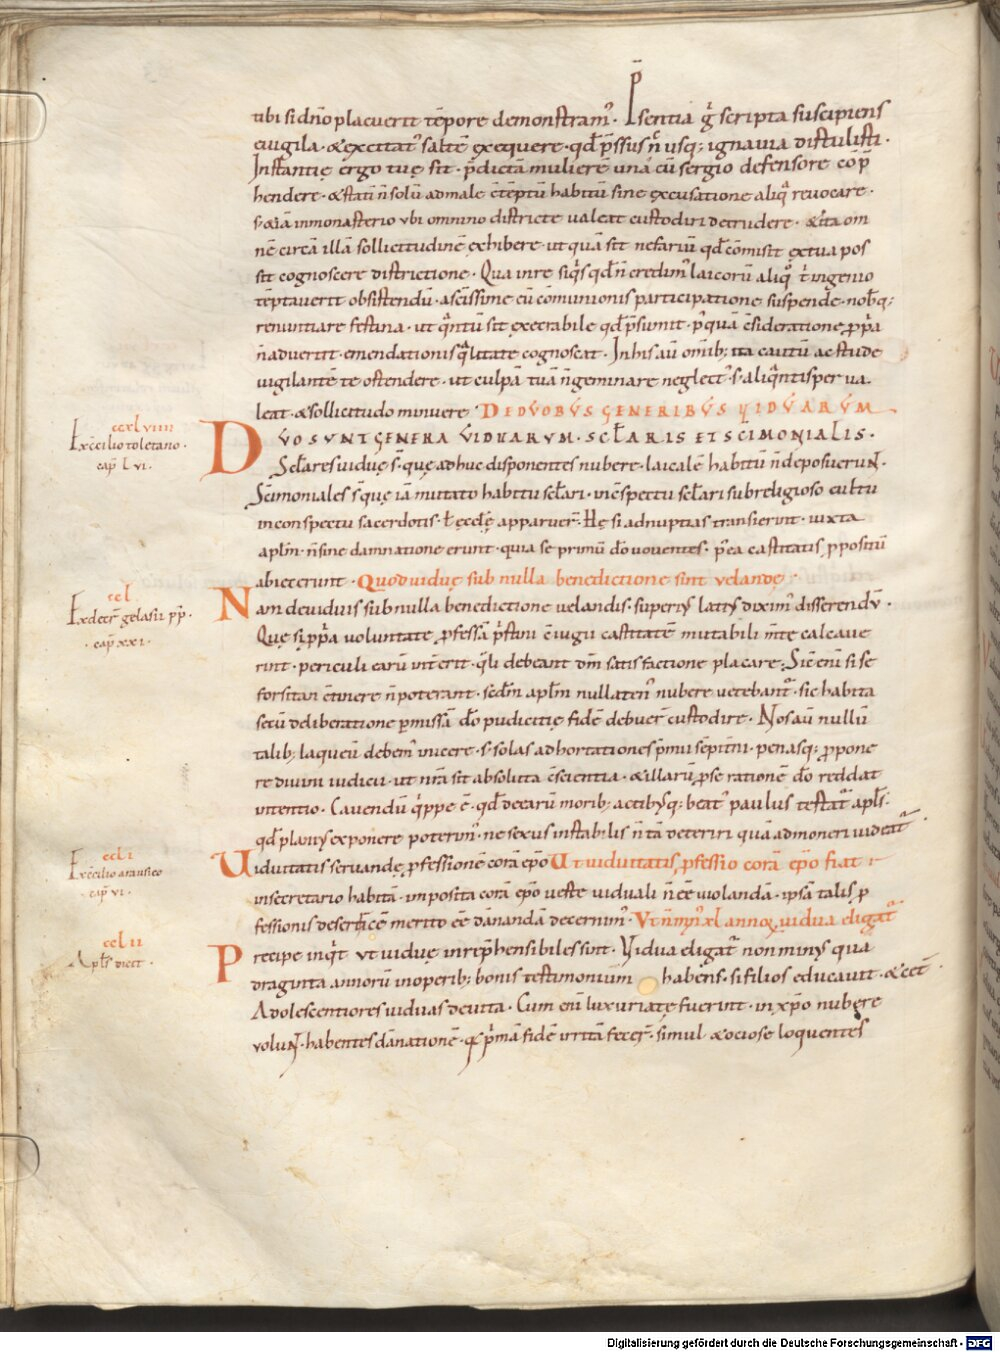 tibi si dño placuerit tẽpore demonstram᷒. P̄sentia g̃ scripta suscipiens
euigila. & excitat᷒ saltẽ exequere. qđ p̄ssus ñ usq; ignauia distulisti.
Instantie ergo tuę sit. p̄dictã mulierẽ una cũ sergio defensore cõp̄
hendere. & statĩ ñ solũ ad male c̃tẽptũ habitũ sine excusatione aliq̃ reuocare.
s; & iã in monasterio ubi omnino districte ualeat custodiri detrudere. & ita om
nẽ circa illã sollicitudinẽ exhibere. ut quã sit nefariũ qđ cõmisit ex tua pos
sit cognoscere districtione. Qua in re siq̃s qđ ñ credim᷒ laicorũ aliq̊ t̃ ingenio
tẽptauerit obsistendũ. ab scissime eũ cõmunionis participatione suspende. nob̃q;
renuntiare festina. ut q̃ntũ sit execrabile qđ p̄sumit. p̱quã c̃sideratione p̱p̱a
ñ aduertit. emendationis q̃litate cognoscat. In his aũ omib; ita cautũ ac stude
uigilantẽ te ostendere. ut culpã tuã ñ geminare neglect᷒ s; aliq̃ntisper ua
leat. & sollicitudo minuere. DE DVOBVS GENERIBVS VIDVARVM
ccxlviiii
Ex c̃cilio toletano.
cap̄ lvi.
DVO SVNT GENERA VIDVARVM. SCL̃ARIS ET SC̃IMONIALIS.
Scl̃ares uiduę s̃. quę adhuc disponentes nubere. laicalẽ habitũ ñ deposuerunt.
Sc̃imoniales s̃ quę iã mutato habitu scl̃ari. in c̃spectu scl̃ari sub religioso cultu
in conspectu sacerdotis. ł ęcclę apparuer̃. Hę si ad nuptias transierint. iuxta
apl̃m. ñ sine damnatione erunt. quia se primũ dõ uouentes. p̱ea castitatis p̱positũ
abiecerunt. Quod uiduę sub nulla benedictione sint uelandę.
ccl
Ex decr̃ gelasii pp̃.
cap̄ xxi.
Nam de uiduis sub nulla benedictione uelandis. superi᷒ lati᷒ dixim᷒ disserendũ.
Quę si p̱p̱a uoluntate p̱fessã p̱stini c̃iugii castitatẽ mutabili m̃te calcaue
rint. periculi earũ int̃erit. q̃li debeant dm̃ satisfactione placare. Sic eni si se
forsitan c̃tinere ñ poterant. scđm apl̃m nullaten᷒ nubere uetebant᷒. sic habita
secũ deliberatione p̱missã dõ pudicitię fidẽ debuer̃ custodire. Nos aũ nullũ
talib; laqueũ debem᷒ inicere. s; solas adhortationes p̱mii sẽpit̃ni. penasq; p̱pone
re diuini iudicii. ut nr̃a sit absoluta c̃scientia. & illarũ p̱ se rationẽ dõ reddat
intentio. Cauendũ q̃ppe ẽ. qđ de earũ morib; actib᷒q; beat᷒ paulus testat᷒ apl̃s.
qđ plani᷒ exponere poterim᷒. ne sexus instabilis ñ tã deterreri quã admoneri uideat᷒.
ccli
Ex c̃cilio arausico
cap̄ vi.
Viduitatis seruandę p̱fessionẽ corã ep̃o Ut uiduitatis p̱fessio corã ep̃o fiat
in secretario habitã. imposita corã ep̃o ueste uiduali ñ ẽẽ uiolandã. ipsã talis p̱
fessionis desertricẽ merito ẽẽ dãnandã decernim᷒. Vt ñ min᷒ xl annoꝝ uidua eligat᷒
cclii
Apl̃s dicit.
Precipe inq̃t ut uiduę inrep̱hensibiles sint. Vidua eligat᷒ non min᷒ qua
draginta annorũ in operib; bonis testimonium habens. si filios educauit. & cet̃.
Adolescentiores uiduas deuita. Cum enĩ luxuriatę fuerint. in xp̃o nubere
volunt. habentes dãnationẽ. qa p̱mã fidẽ irritã fecer̃. simul & ociose loquentes
Digitalisierung gefördert durch die Deutsche Forschungsgemeinschaft - DFG